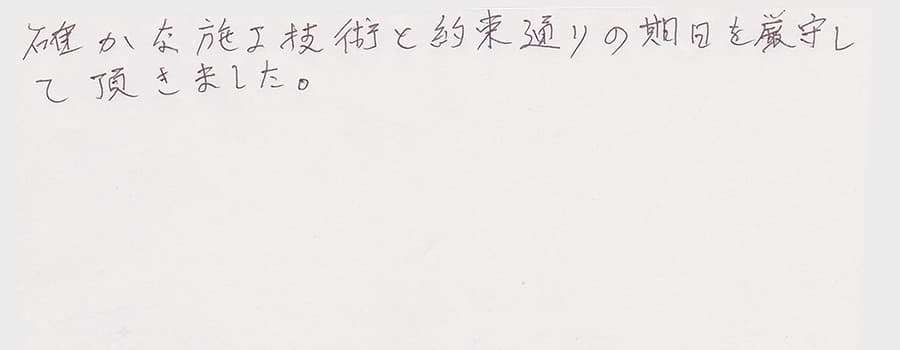 確かな施工技術と約束通りの期日を厳守し
て頂きました。